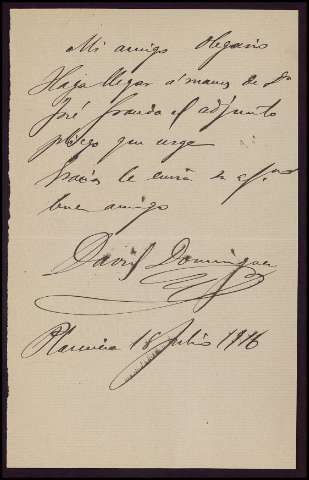 Mi amigo Olegario
Haga llegar á manos de Dn
José Granda el adjunto
pliego que urge
Gracias le envia su afmo
buen amigo
David Dominguez
Plasencia 18 Julio 1916